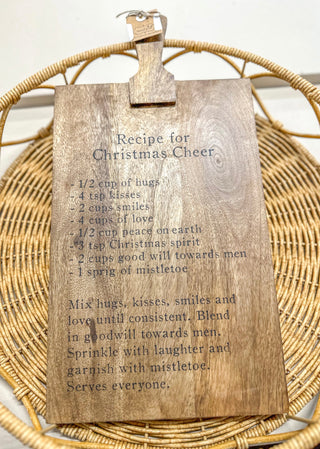 Recipe for
Christmas Cheer
- 1/2 cup of hugs
- 4 tsp kisses
- 2 cups smiles
- 4 cups of love
- 1/2 cup peace on earth
- 3 tsp Christmas spirit
- 2 cups good will towards men
- 1 sprig of mistletoe
Mix hugs, kisses, smiles and
love until consistent. Blend
in goodwill towards men.
Sprinkle with laughter and
garnish with mistletoe.
Serves everyone.